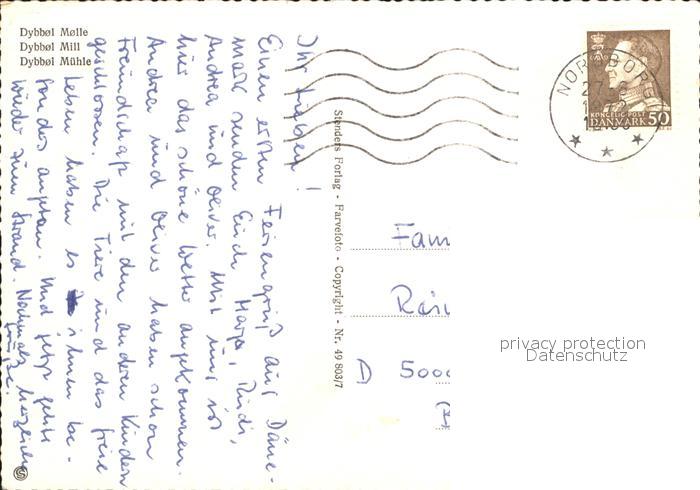 Dybbøl Mølle
Dybbøl Mill
Dybbøl Mühle
Ihr Lieben!
Einen ersten Feriengruß aus Däne-
mark senden Euch Maga, Rudi,
Andrea und Oliver. Mit uns ist
hier das schöne Wetter angekommen.
Andrea und Oliver haben schon
Freundschaft mit den anderen Kindern
geschlossen. Die Tiere und das freie
Leben haben es ihnen be-
sonders angetan. Und jetzt geht's
wieder zum Strand. Nochmals herzliche
Grüße.
Stenders Forlag - Farvefoto - Copyright - Nr. 49 803/7
NORDBORG
KONGELIG POST
DANMARK 50
Fam
D 5000
privacy protection
Datenschutz